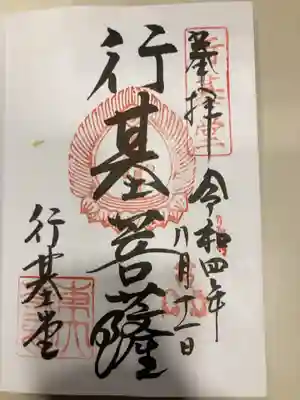 奉拝
令和四年
八月十一日
行基菩薩
行基堂
行基堂